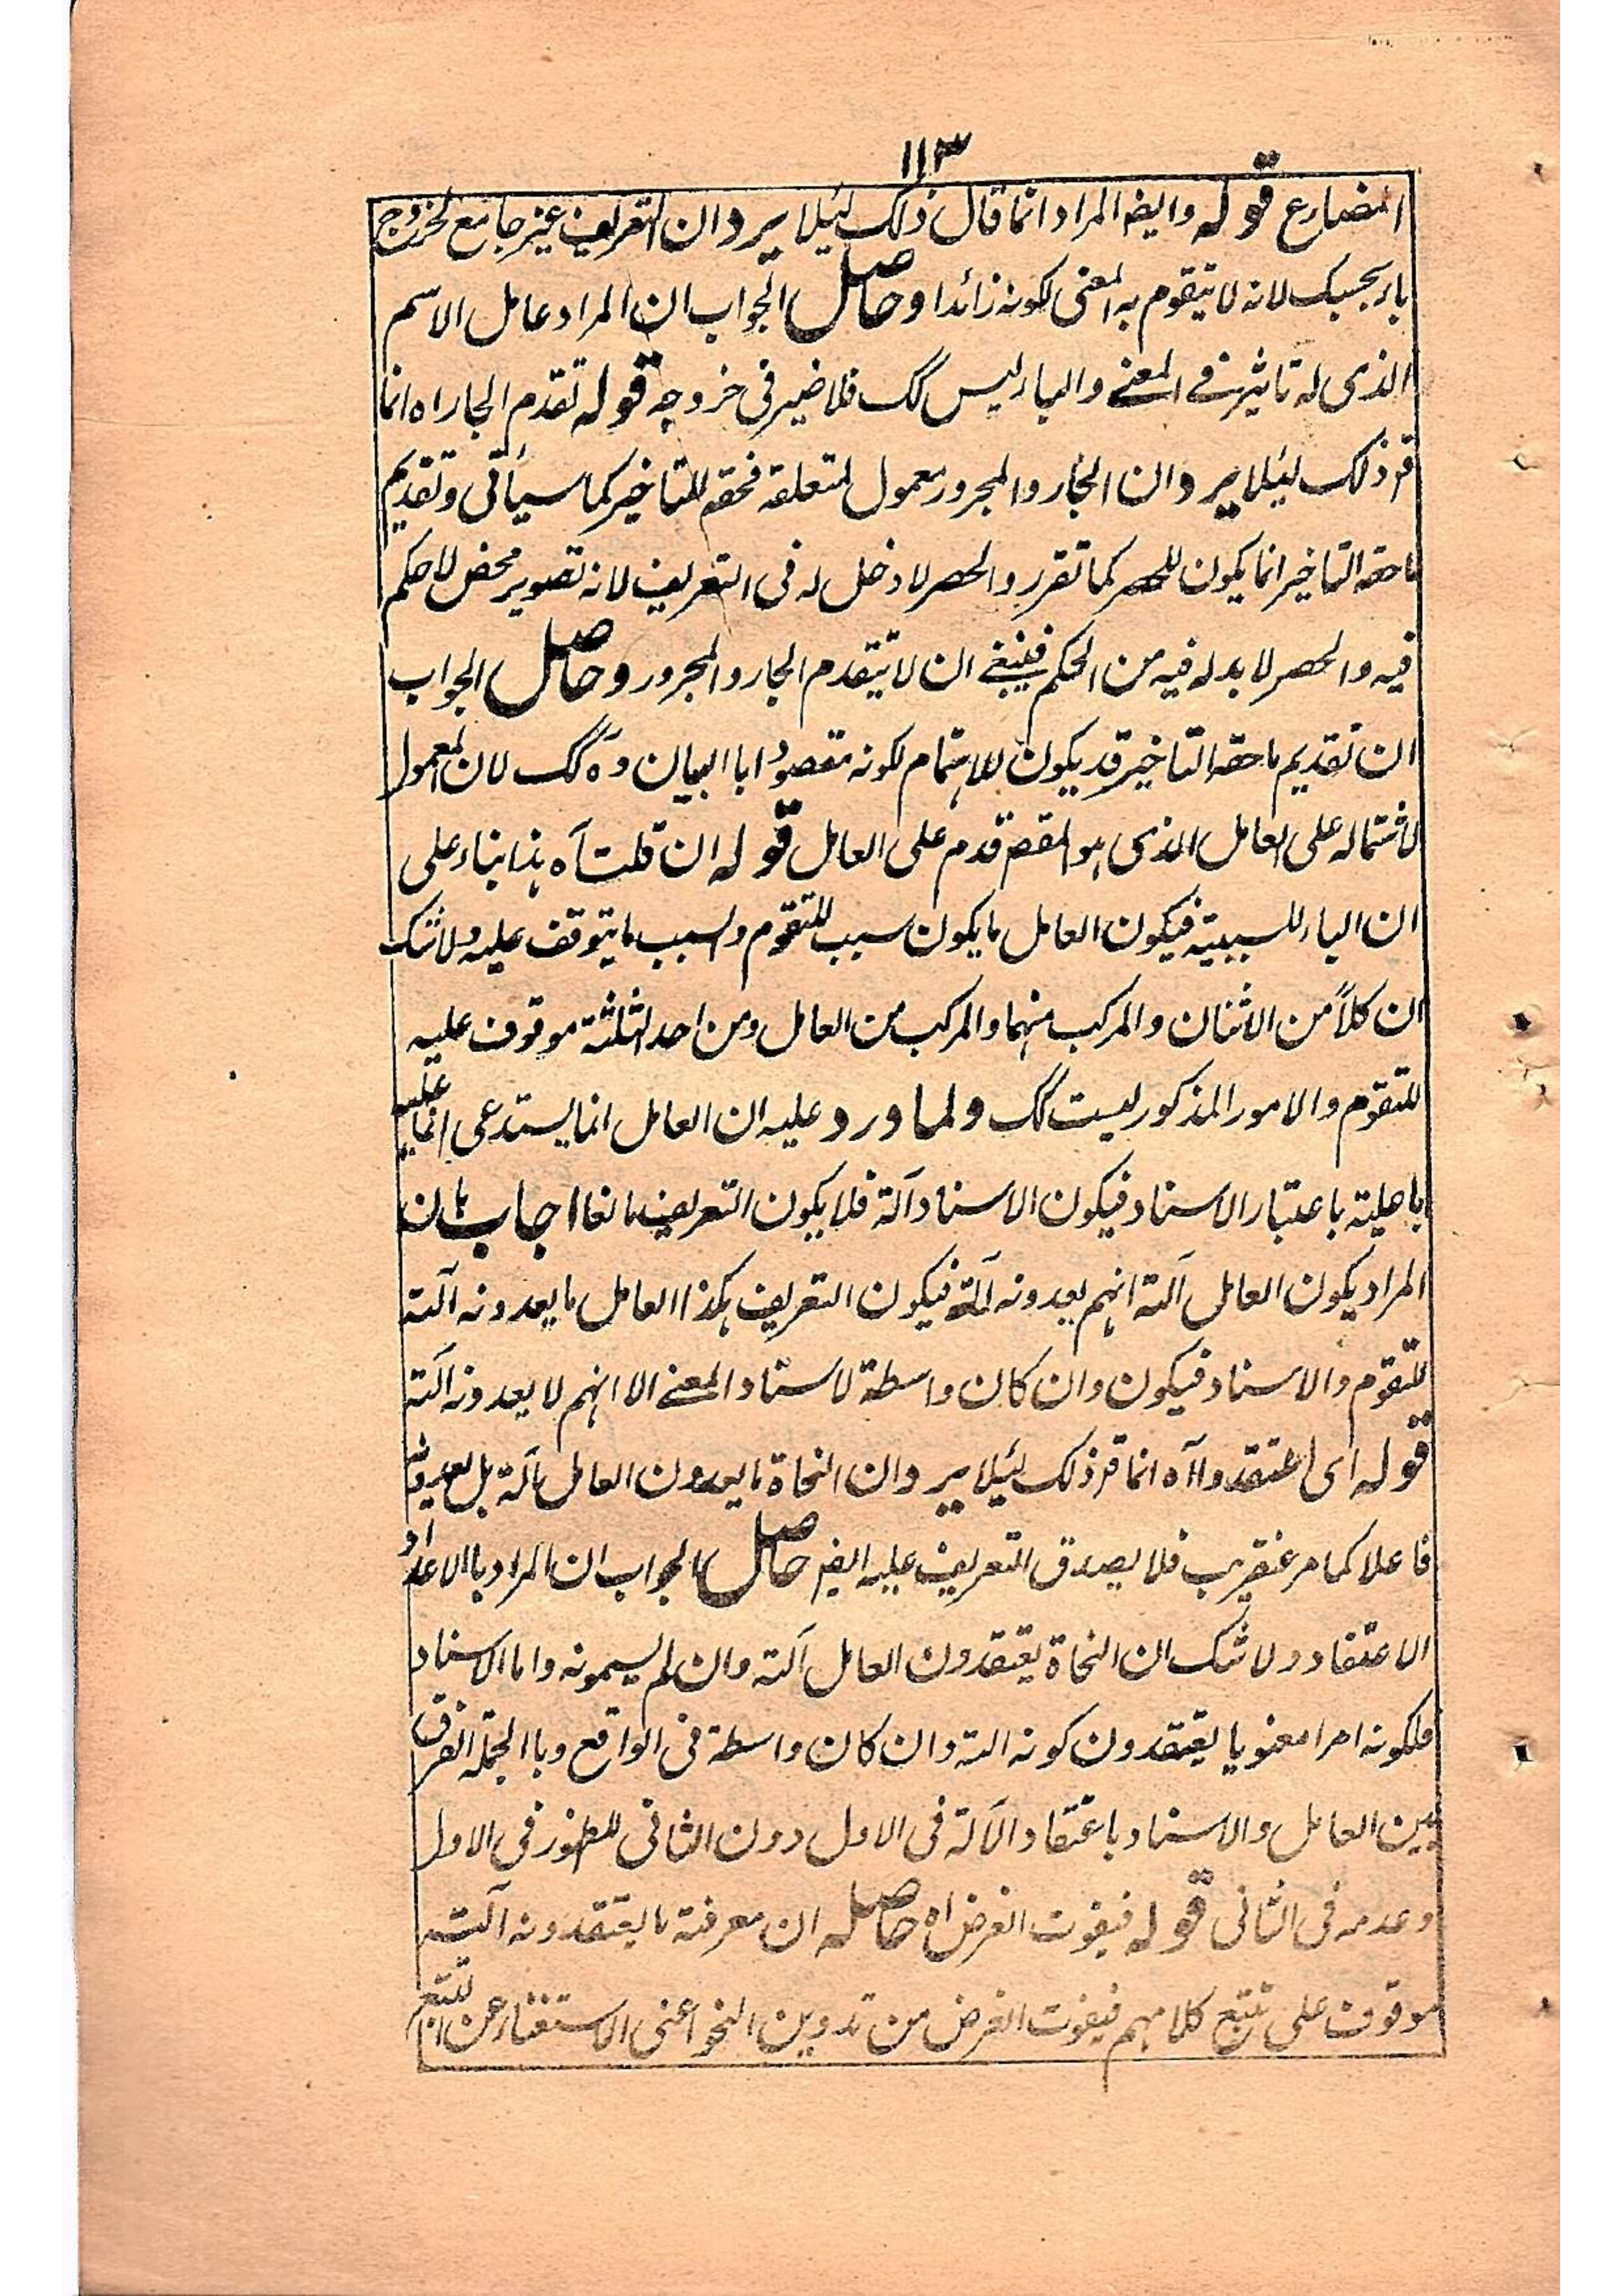 ١١٣
المضارع قوله وايضہ المراد انما قال ذلک لئیلا یرد ان التعریف غیر جامع لخروج
باء بحبک لانہ لا یتقوم بہ المعنی لکونہ زائدا وحاصل الجواب ان المراد عامل الاسم
الذی لہ تاثیر فے المعنے والباء لیس کک فلا ضیر فی خروجہ قولہ تقدم الجار اہ انما
قر ذلک لئیلا یرد ان الجار والمجرور معمول لمتعلقہ فحقہ التاخیر کما سیأتی وتقدیم
ماحقہ التاخیر انما یکون للحصر کما تقرر والحصر لا دخل لہ فی التعریف لانہ تصویر محض لا حکم
فیہ والحصر لا بد لہ فیہ من الحکم فینبغے ان لا یتقدم الجار والمجرور وحاصل الجواب
ان تقدیم ماحقہ التاخیر قد یکون للاہتمام لکونہ مقصودا با البیان وہ کک لان المعمول
لاشتمالہ علی العامل الذی ہو المقصہ قدم علی العامل قولہ ان قلت آہ ہذا بناء علی
ان الباء للسببیۃ فیکون العامل ما یکون سبب للتقوم والسبب ما یتوقف علیہ ولا شک
ان کلاً من الاثنان والمرکب منہما والمرکب من العامل ومن احد الثلثۃ موقوف علیہ
للتقوم والامور المذکور لیست کک ولما ورد علیہ ان العامل انما یستدعی
باعلیتہ باعتبار الاسناد فیکون الاسناد آلۃ فلا یکون التعریف مانعا اجاب بان
المراد بکون العامل آلتہ انہم یعدونہ آلۃ فیکون التعریف ہکذا العامل ما یعدونہ آلتہ
للتقوم والاسناد فیکون وان کان واسطۃ لاسناد المعنے الا انہم لا یعدونہ آلتہ
قولہ ای اعتقدوا آہ انما قر ذلک لئیلا یرد ان النحاۃ ما یعدون العامل بآلۃ بل یعدونہ
فاعلا کما مر عنقریب فلا یصدق التعریف علیہ ایضہ حاصل الجواب ان المراد با الاعداد
الاعتقاد ولا شک ان النحاۃ یعتقدون العامل آلتہ وان لم یسمونہ واما الاسناد
فلکونہ امرا معنویا یعتقدون کونہ التہ وان کان واسطۃ فی الواقع وبا الجملۃ الفرق
بین العامل والاسناد باعتقاد الآلۃ فی الاول دون الثانی للظہور فی الاول
وعدمہ فی الثانی قولہ فیفوت الغرض اہ حاصلہ ان معرفۃ ما یعتقدونہ آلتہ
موقوف علی تتبع کلامہم فیفوت الغرض من تدوین النحو اعنی الاستغناء عن التتبع